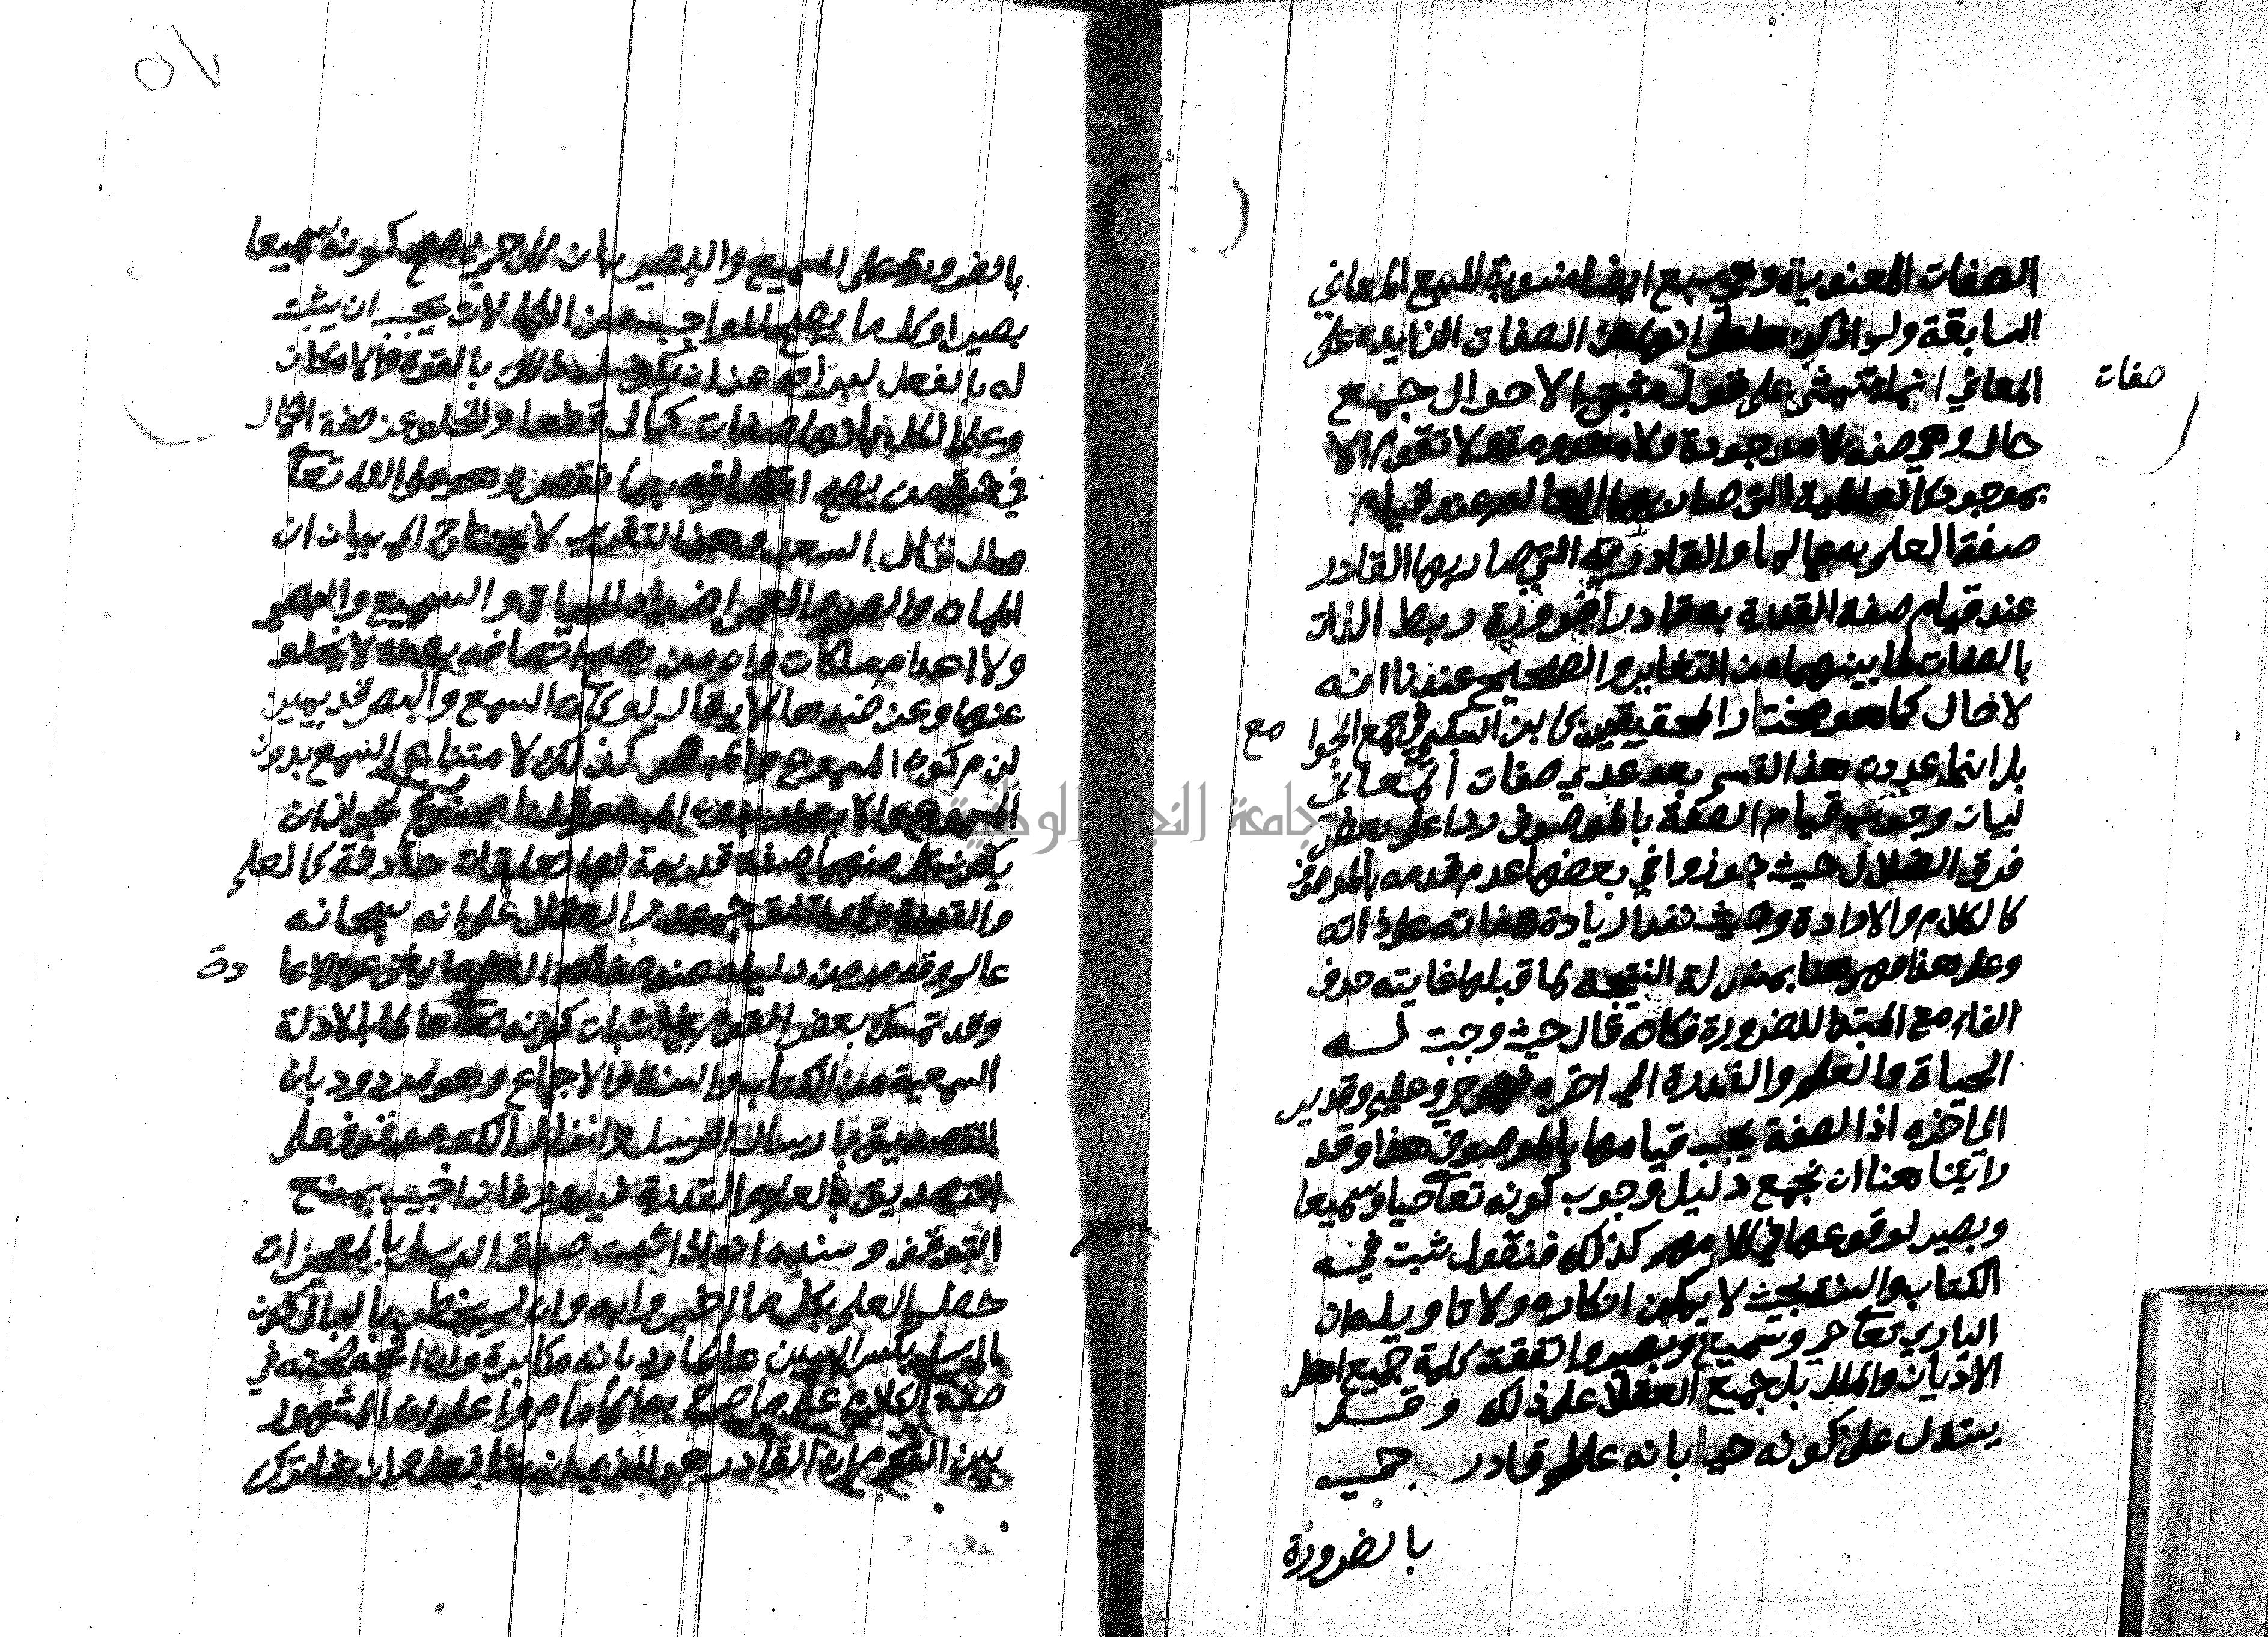 الصفات المعنوية وهي سبع ايضا منسوبة للسبع المعاني
السابقة ولو اذكر انها من الصفات الزايدة على
المعاني انما تتمشى على قول مثبتي الاحوال جمع
صفات
حال وهي صفة لا موجودة ولا معدومة ولا تقوم الا
بموجود كالعالمية التي صار بها العالم عند قيام
صفة العلم به عالما والقادرية التي صار بها القادر
عند قيام صفة القدرة به قادرا ضرورة ربط الذات
بالصفات لما بينهما من التغاير والصحيح عندنا انه
لا حال كما هو مختار المحققين كابن السبكي في جمع الجوا
مع
بل انما عدوا هذا القسم بعد عدي صفات المعاني
لبيان وجوب قيام الصفة بالموصوف ردا على بعض
فرق الضلال حيث جوزوا في بعضها عدم قدمه بالموصوف
كالكلام والارادة وحيث نفوا زيادة صفاته على ذاته
وعلى هذا فهو هنا بمنزلة النتيجة لما قبلها غايته حذف
الفاء مع المبتدا للضرورة فكانه قال حيث وجبت لسه
الحياة والعلم والقدرة الى اخره فهو حي وعليم وقدير
الى اخره اذ الصفة يجب قيامها بالموصوف هذا وقد
راينا هنا ان نجمع دليل وجوب كونه تعا حيا وسميعا
وبصير لوقوعها في كلامهم كذلك فنقول ثبت في
الكتاب والسنة بحيث لا يمكن انكاره ولا تاويله ان
الباري تعا حي وسميع وبصير واتفقت كلمة جميع اهل
الاديان والملل بل جميع العقلا على ذلك وقد
يستدل على كونه حيا بانه عالم قادر حي
بالضرورة
بالضرورة وعلى السميع والبصير بان كل حي يصح كونه سميعا
بصيرا وكل ما يصح للواجب من الكمالات يجب ان يثبت
له بالفعل لبراته عن ان يكون له ذلك بالقوة والامكان
وعلى الكل بانها صفات كمال قطعا والخلو عن صفة الكمال
في حق من يصح اتصافه بها نقص وهو على الله تعا
محال قال السعد وهذا التقرير لا يحتاج الى بيان ان
المماة والصمم والعمى اضداد للحياة والسميع والبصر
ولا اعدام ملكات وان من يصح اتصافه بصفة لا يخلو
عنها وعن ضدها لا يقال لو كان السمع والبصر قديمين
لزم كون المسموع والمبصر كذلك لامتناع السمع بدون
المسموع والابصار بدون المبصر قلنا ممنوع لجواز ان
يكون كل منهما صفة قديمة لها تعلقات حادثة كالعلم
والقدرة وقد اتفق جمهور العقلا على انه سبحانه
عالم وقد مر من دليله عند صفة العلم ما يغني عن الاعا
دة
وقد تمسك بعض القوم في اثبات كونه تعا عالما بالادلة
السمعية من الكتاب والسنة والاجماع وهو مردود بان
التصديق بارسال الرسل وانزال الكتب موقوف على
التصديق بالعلم والقدرة فيدور فان اجيب بمنع
التوقف وسنده انه اذا ثبت صدق الرسل بالمعجزات
حصل العلم بكل ما اخبروا به وان لم يخطر بالبال كون
المرسل بكسر السين عالما رد بانه مكابرة وان اتجه صحته في
صفة الكلام على ما صرح به الامام واعلم ان المشهور
بين القوم ان القادر هو الذي ان شا فعل وان شا ترك